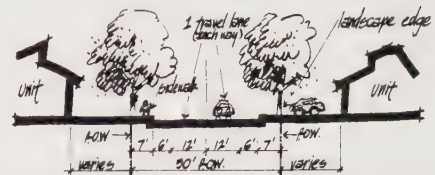 1 travel lane
(each way)
landscape edge
sidewalk
unit
unit
R.O.W.
7' 6' 12' 12' 6' 7'
R.O.W.
varies
50' R.O.W.
varies